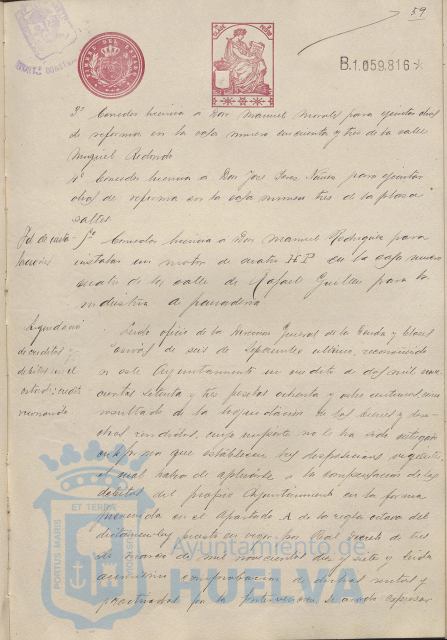 59
TIMBRE DEL ESTADO
B.1.059.816*
3º Conceder licencia a Don Manuel Morales para ejecutar obras
de reforma en la casa numero cincuenta y tres de la calle
Miguel Redondo
4º Conceder licencia a Don José Perez Nuñez para ejecutar
obras de reforma en la casa numero tres de la plaza
Saltés
5º Conceder licencia a Don Manuel Rodriguez para
instalar un motor de cuatro HP en la casa numero
cuatro de la calle de Rafael Guillen para la
industria de panaderia
Liquidacion
de creditos y
debitos en el
Leido oficio de la Direccion General de la Deuda y Clases
Pasivas de seis de Septiembre ultimo, reconociendo
a este Ayuntamiento un credito de dos mil
setenta y tres pesetas ochenta y ocho centimos, como
resultado de la liquidacion de los bienes y
cuyo importe no le ha sido entregado
que establecen las disposiciones vigentes
el cual habrá de aplicarse a la compensacion de los
debitos del propio Ayuntamiento en la forma
prevenida en el Apartado A de la regla octava del
puesto en vigor por Real Decreto de tres
de Marzo de mil novecientos diez y siete y leida
comprobacion de dichas
practicadas por la Intervencion, se acordó expresar
PORTUS MARIS
ET TERRAE
Ayuntamiento de
HUELVA